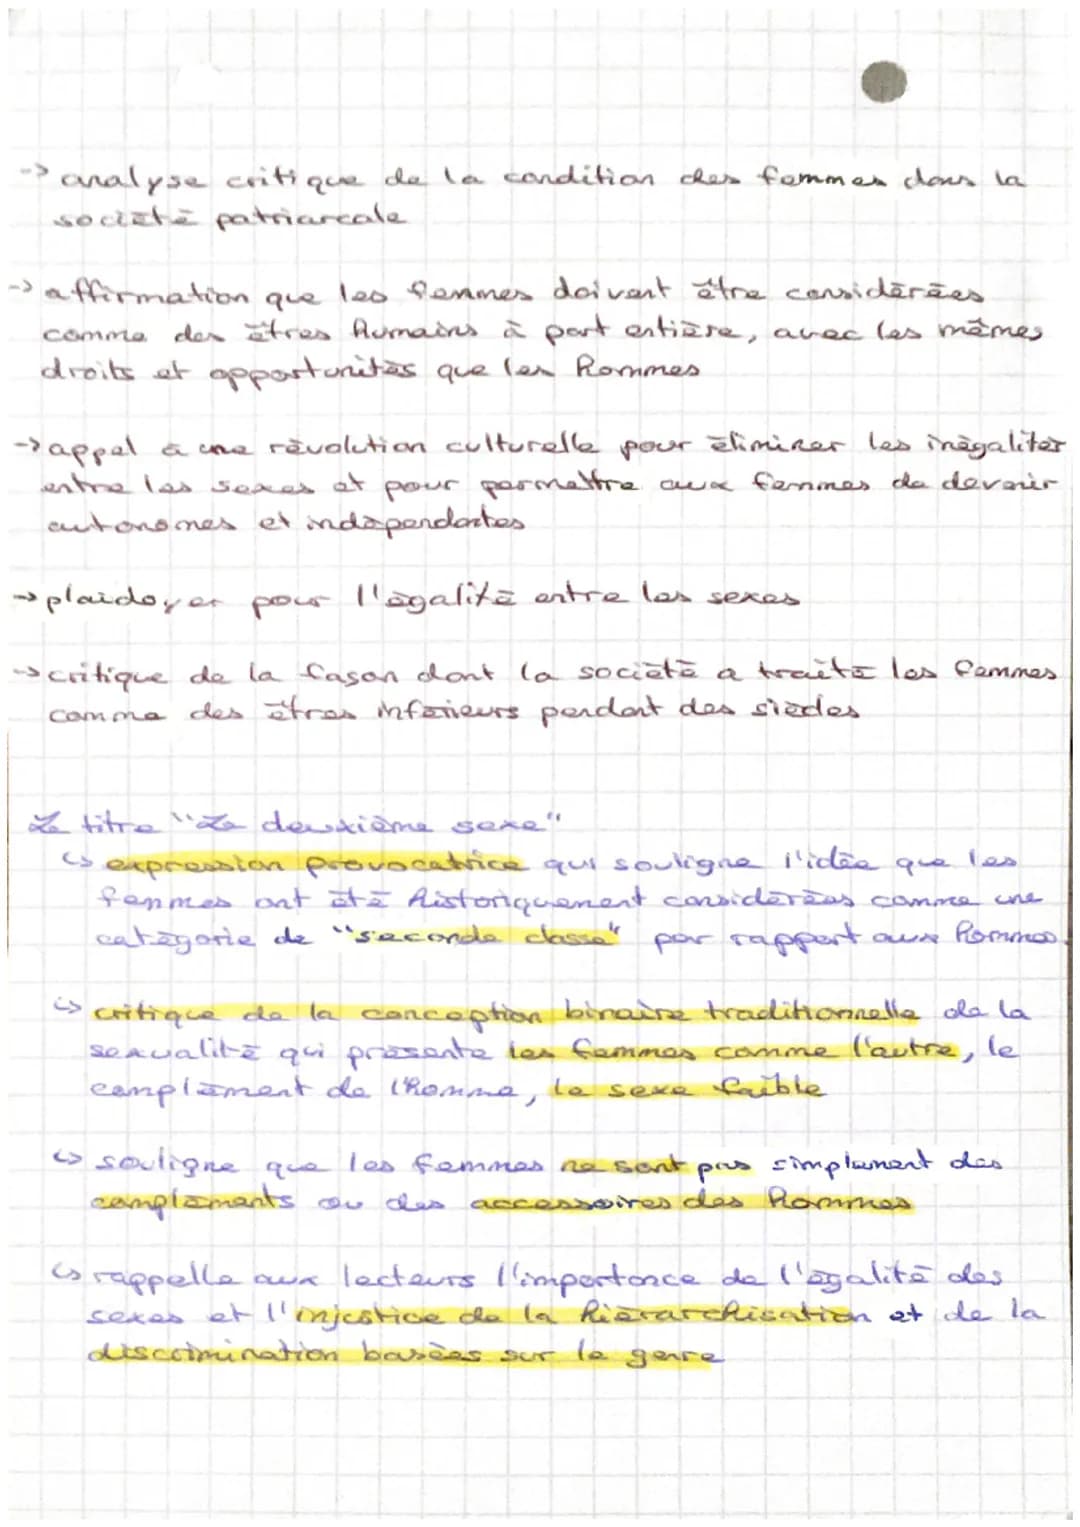 -> analyse critique de la condition des femmes dans la
société patriarcale
-> affirmation que les femmes doivent être considérées
comme des êtres humains à part entière, avec les mêmes
droits et opportunités que les hommes
-> appel à une révolution culturelle pour éliminer les inégalités
entre les sexes et pour permettre aux femmes de devenir
autonomes et indépendantes
-> plaidoyer pour l'égalité entre les sexes
-> critique de la façon dont la société a traité les femmes
comme des êtres inférieurs pendant des siècles
Le titre "Le deuxième sexe"
↳ expression provocatrice qui souligne l'idée que les
femmes ont été historiquement considérées comme une
catégorie de "seconde classe" par rapport aux hommes.
↳ critique de la conception binaire traditionnelle de la
sexualité qui présente les femmes comme l'autre, le
complément de l'homme, le sexe faible
↳ souligne que les femmes ne sont pas simplement des
compléments ou des accessoires des hommes
↳ rappelle aux lecteurs l'importance de l'égalité des
sexes et l'injustice de la hiérarchisation et de la
discrimination basées sur le genre